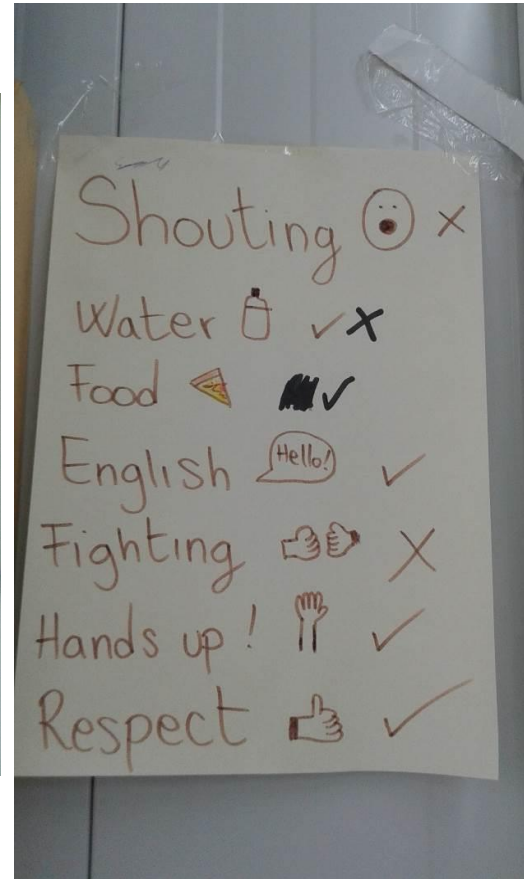 Shouting ✗
Water ✓✗
Food ✓
English Hello! ✓
Fighting ✗
Hands up! ✓
Respect ✓